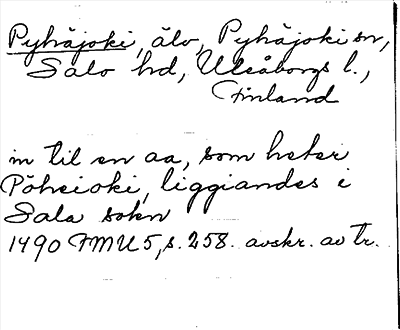 Pyhäjoki, älv, Pyhäjoki sn,
Salo hd, Uleåborgs l.,
Finland
in til en aa, som heter
Pöheioki, liggiandes i
Sala sokn
1490 FMU 5, s. 258. avskr. av tr.